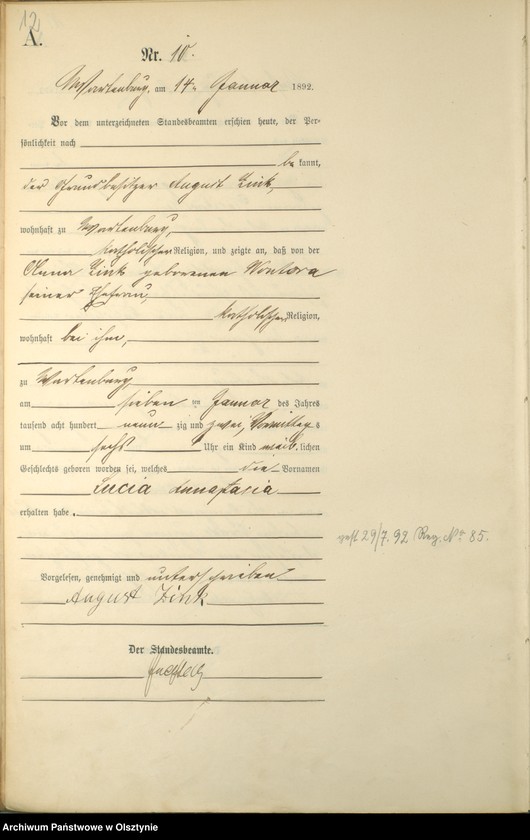 12
A.
Nr. 10.
Wartenburg, am 14. Januar 1892.
Vor dem unterzeichneten Standesbeamten erschien heute, der Per-
sönlichkeit nach
bekannt,
der Grundbesitzer August Zink,
wohnhaft zu Wartenburg,
katholischer Religion, und zeigte an, daß von der
Anna Zink geborenen Wontora
seiner Ehefrau,
katholischer Religion,
wohnhaft bei ihm,
zu Wartenburg
am sieben ten Januar des Jahres
tausend acht hundert neun zig und zwei, Vormittag s
um sechs Uhr ein Kind weib lichen
Geschlechts geboren worden sei, welches die Vornamen
Lucia Anastasia
erhalten habe.
gest. 29/7. 92 Reg. No 85.
Vorgelesen, genehmigt und unterschrieben
August Zink
Der Standesbeamte.
Archiwum Państwowe w Olsztynie